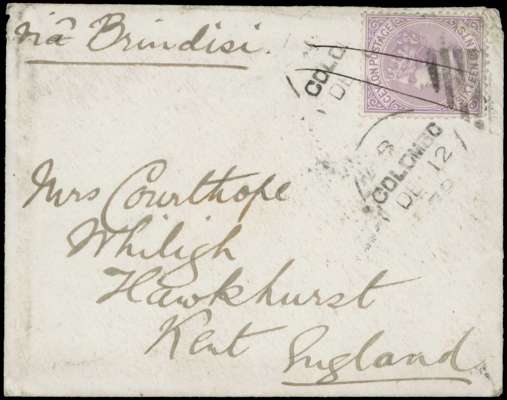 via Brindisi.
CEYLON POSTAGE
COLO
COLOMBO
DE 12
Mrs Courthope
Whiligh
Hawkhurst
Kent England